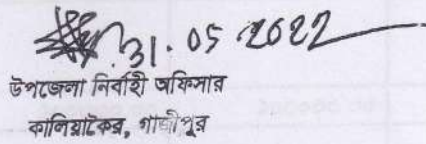 31.05.2022
উপজেলা নির্বাহী অফিসার
কালিয়াকৈর, গাজীপুর